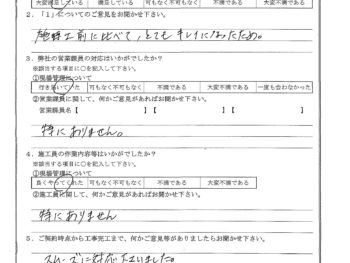 大変満足している 満足している 可もなく不可もなく 不満である 大変不満である
２．「１」についてのご意見をお聞かせ下さい。
施工前に比べて、とてもキレイになったため。
３．弊社の営業課員の対応はいかがでしたか？
※該当する項目に○を記入して下さい。
①現場管理について
行き届いてた 可もなく不可もなく 不満である 大変不満である 一度も会わなかった
②営業課員に関して、何かご意見があればお聞かせ下さい。
営業課員名【 】【 】【 】
特にありません。
４．施工員の作業内容等はいかがでしたか？
※該当する項目に○を記入して下さい。
①現場管理について
良くやってくれた 可もなく不可もなく 不満である 大変不満である
②施工員に関して、何かご意見があればお聞かせ下さい。
特にありません
５．ご契約時点から工事完工まで、何かご意見等がありましたらお聞かせ下さい。
スムーズに対応下さいました。